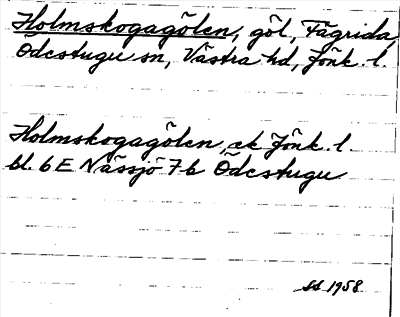 Holmskogagölen, göl, Fägrida,
Ödestugu sn, Västra hd, Jönk. l.
Holmskogagölen, ek Jönk. l.
bl. 6 E Nässjö 7 b Ödestugu
SS 1958